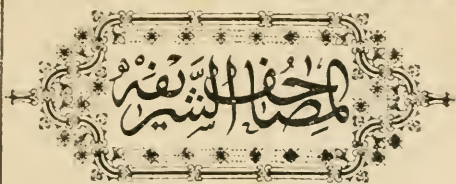 المصاحف الشَّريفة